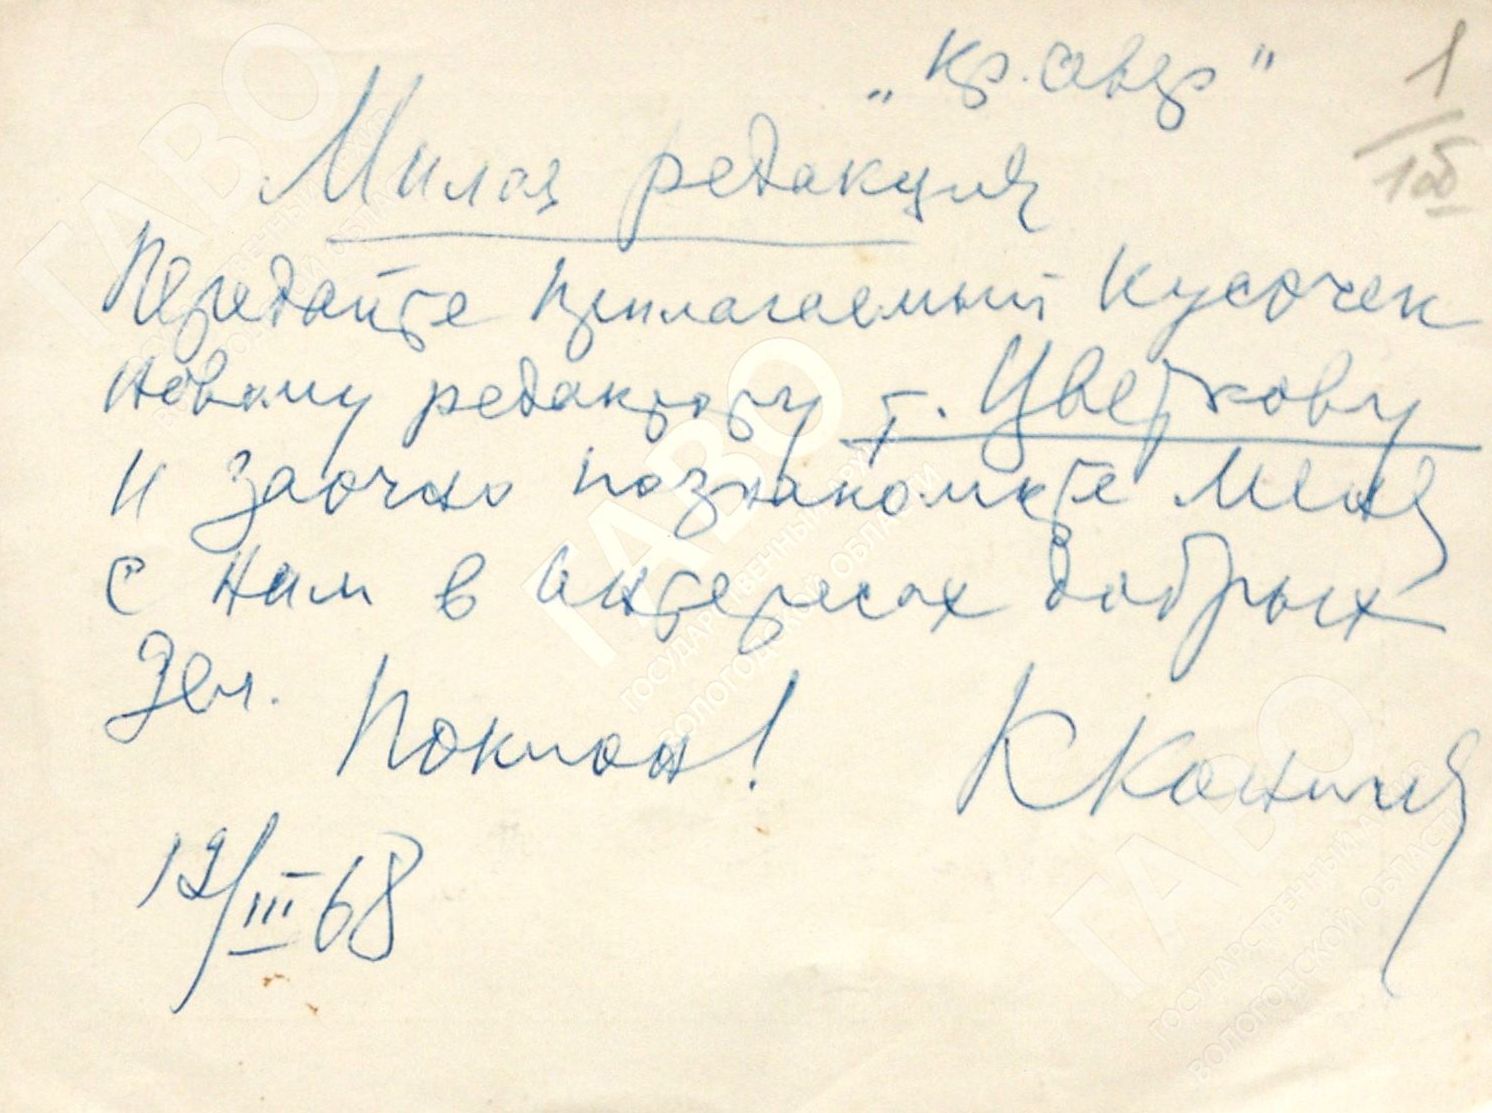 „Кр. Север"
1/10б
Милая редакция
Передайте прилагаемый кусочек
новому редактору т. Цветкову
и заочно познакомьте меня
с ним в интересах добрых
дел.
Поклон! К Коничев
12/III 68
ГАВО
ГОСУДАРСТВЕННЫЙ АРХИВ
ВОЛОГОДСКОЙ ОБЛАСТИ